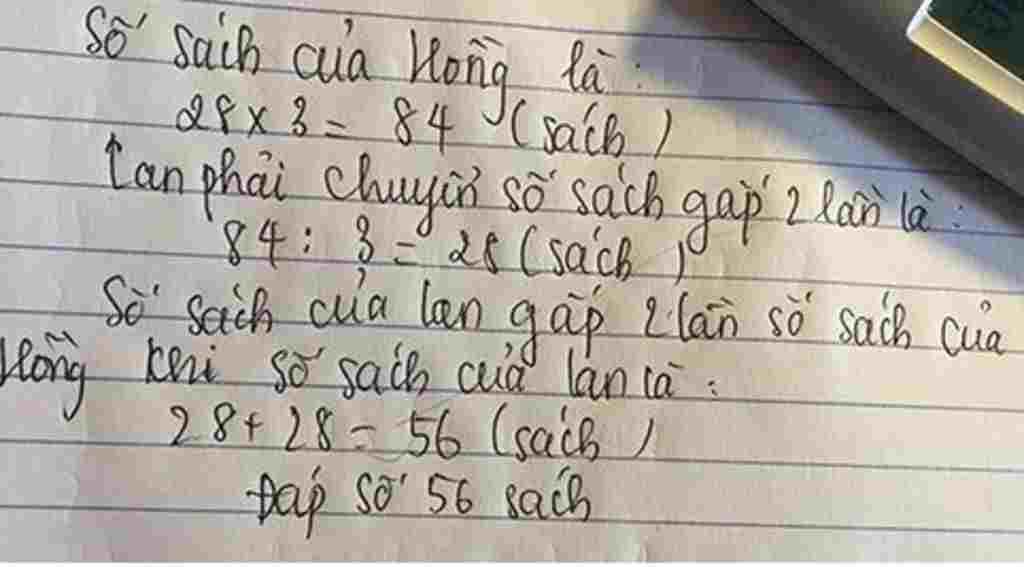 Số sách của Hồng là:
28 x 3 = 84 (sách)
Lan phải chuyển số sách gấp 2 lần là:
84 : 3 = 28 (sách)
Số sách của lan gấp 2 lần số sách của
Hồng khi số sách của lan là:
28 + 28 = 56 (sách)
Đáp số 56 sách